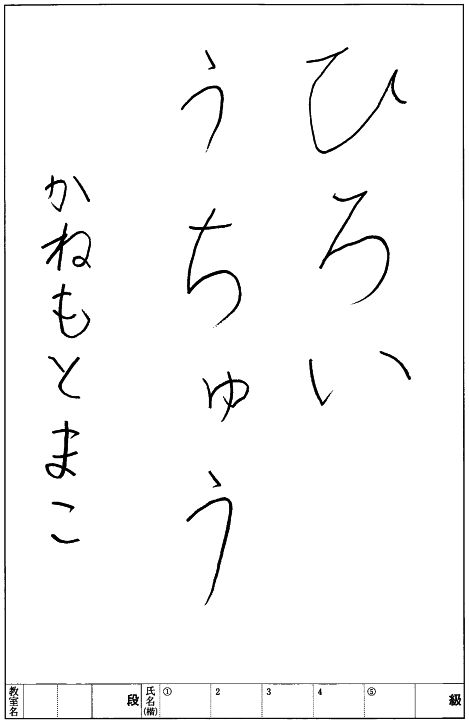 ひろい
うちゅう
かねもとまこ
教室名 段 氏名(楷) ① 2 3 4 ⑤ 級